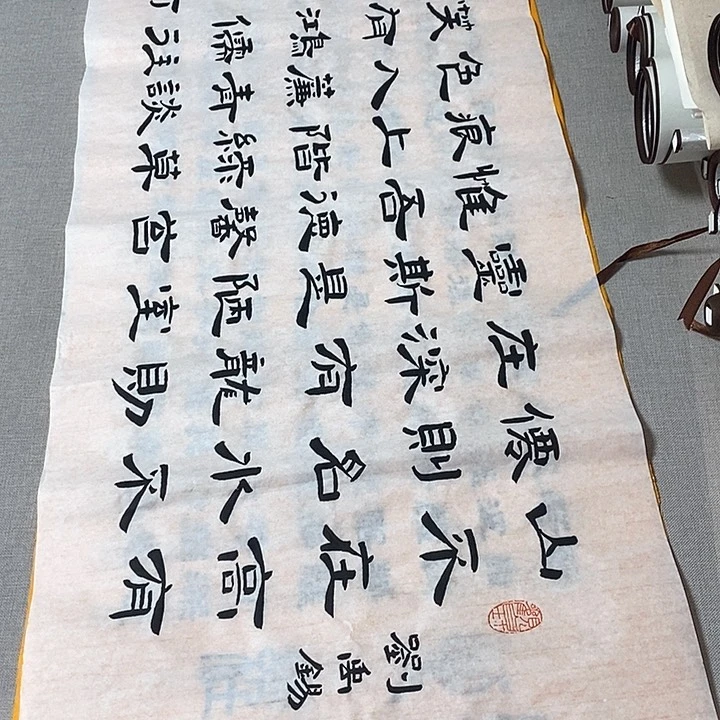 劉禹錫
山不在高有
僊則名水不
在深有龍則
靈斯是陋室
惟吾德馨苔
痕上階綠草
色入簾青談
笑有鴻儒往